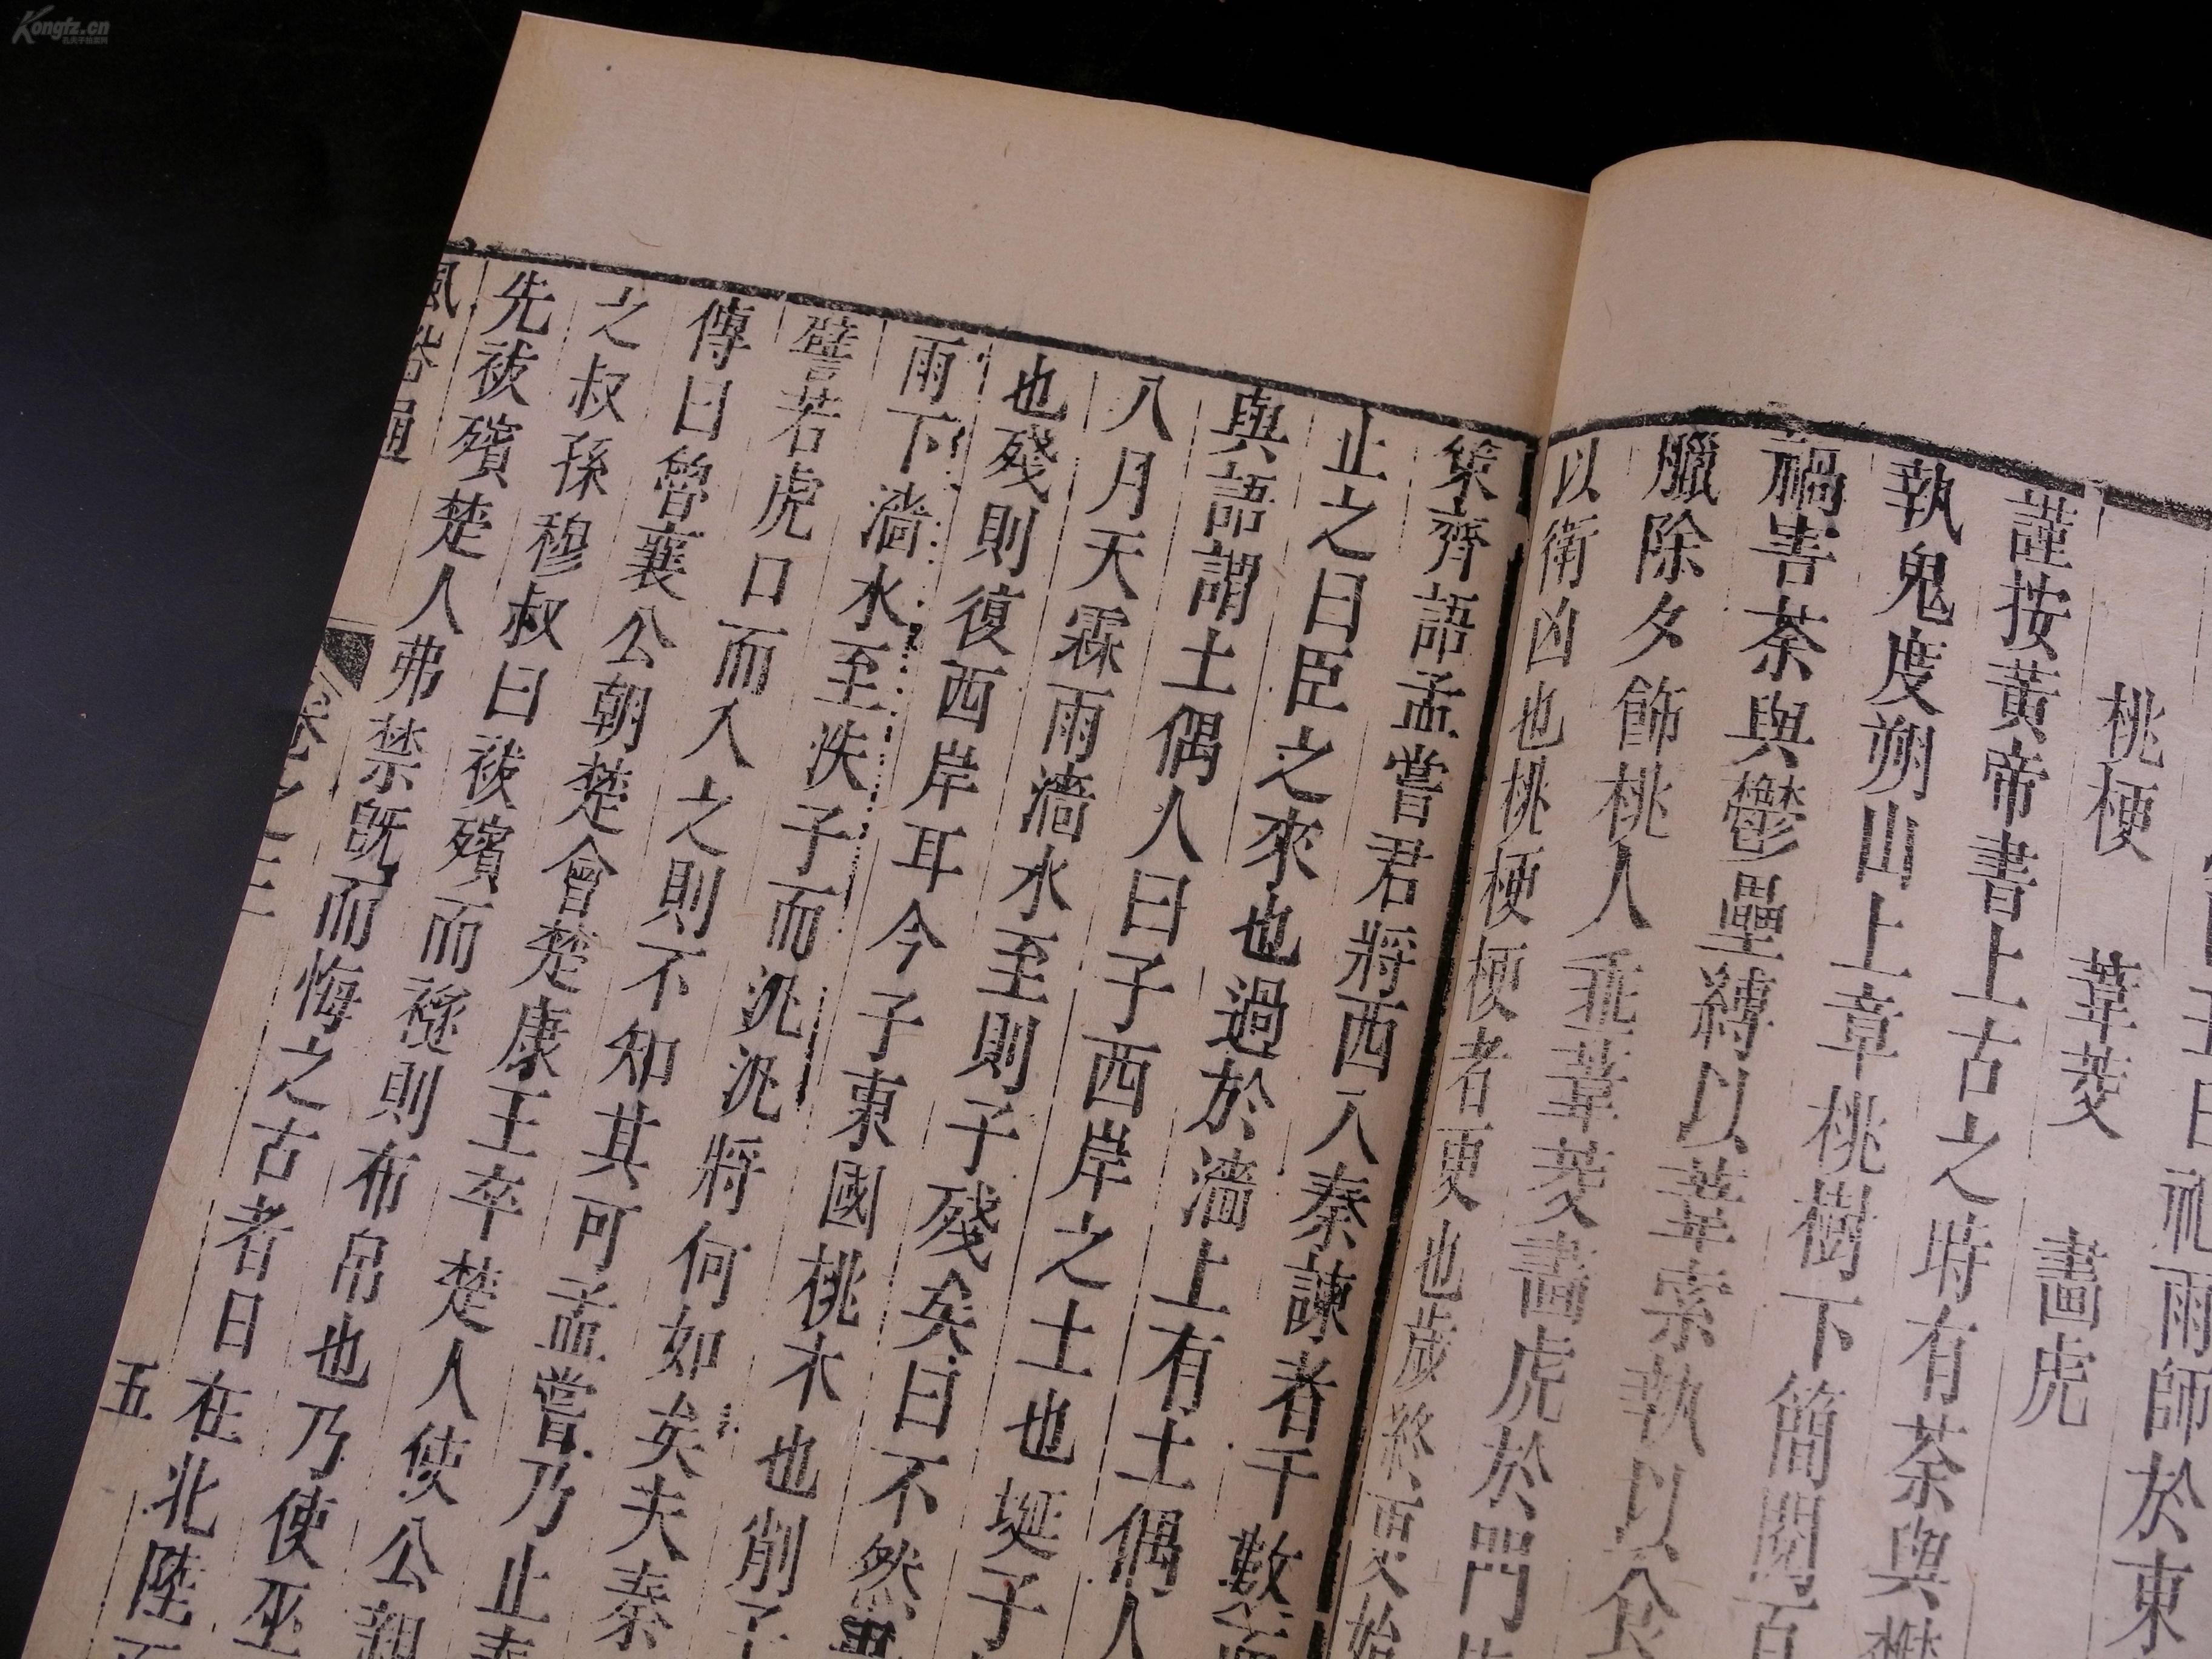 Kongfz.cn
祀雨師於東
桃梗 葦茭 畫虎
謹按黃帝書上古之時有荼與
執鬼度朔山上章桃樹下簡閱百
禍害荼與鬱壘縛以葦索執以食
臘除夕飾桃人垂葦茭畫虎於門
以衛凶也桃梗梗者更也歲終更始
策齊語孟嘗君將西入秦諫者千數
止之曰臣之來也過於淄上有土偶人
與語謂土偶人曰子西岸之土也埏子
八月天霖雨淄水至則子殘矣曰不然
也殘則復西岸耳今子東國桃木也削子
雨下淄水至泆子而汎汎將何如矣夫秦
譬若虎口而入之則不知其可孟嘗乃止
傳曰魯襄公朝楚會楚康王卒楚人使公親
之叔孫穆叔曰祓殯而襚則布帛也乃使巫
先祓殯楚人弗禁旣而悔之古者日在北陸
風俗通 卷之 五